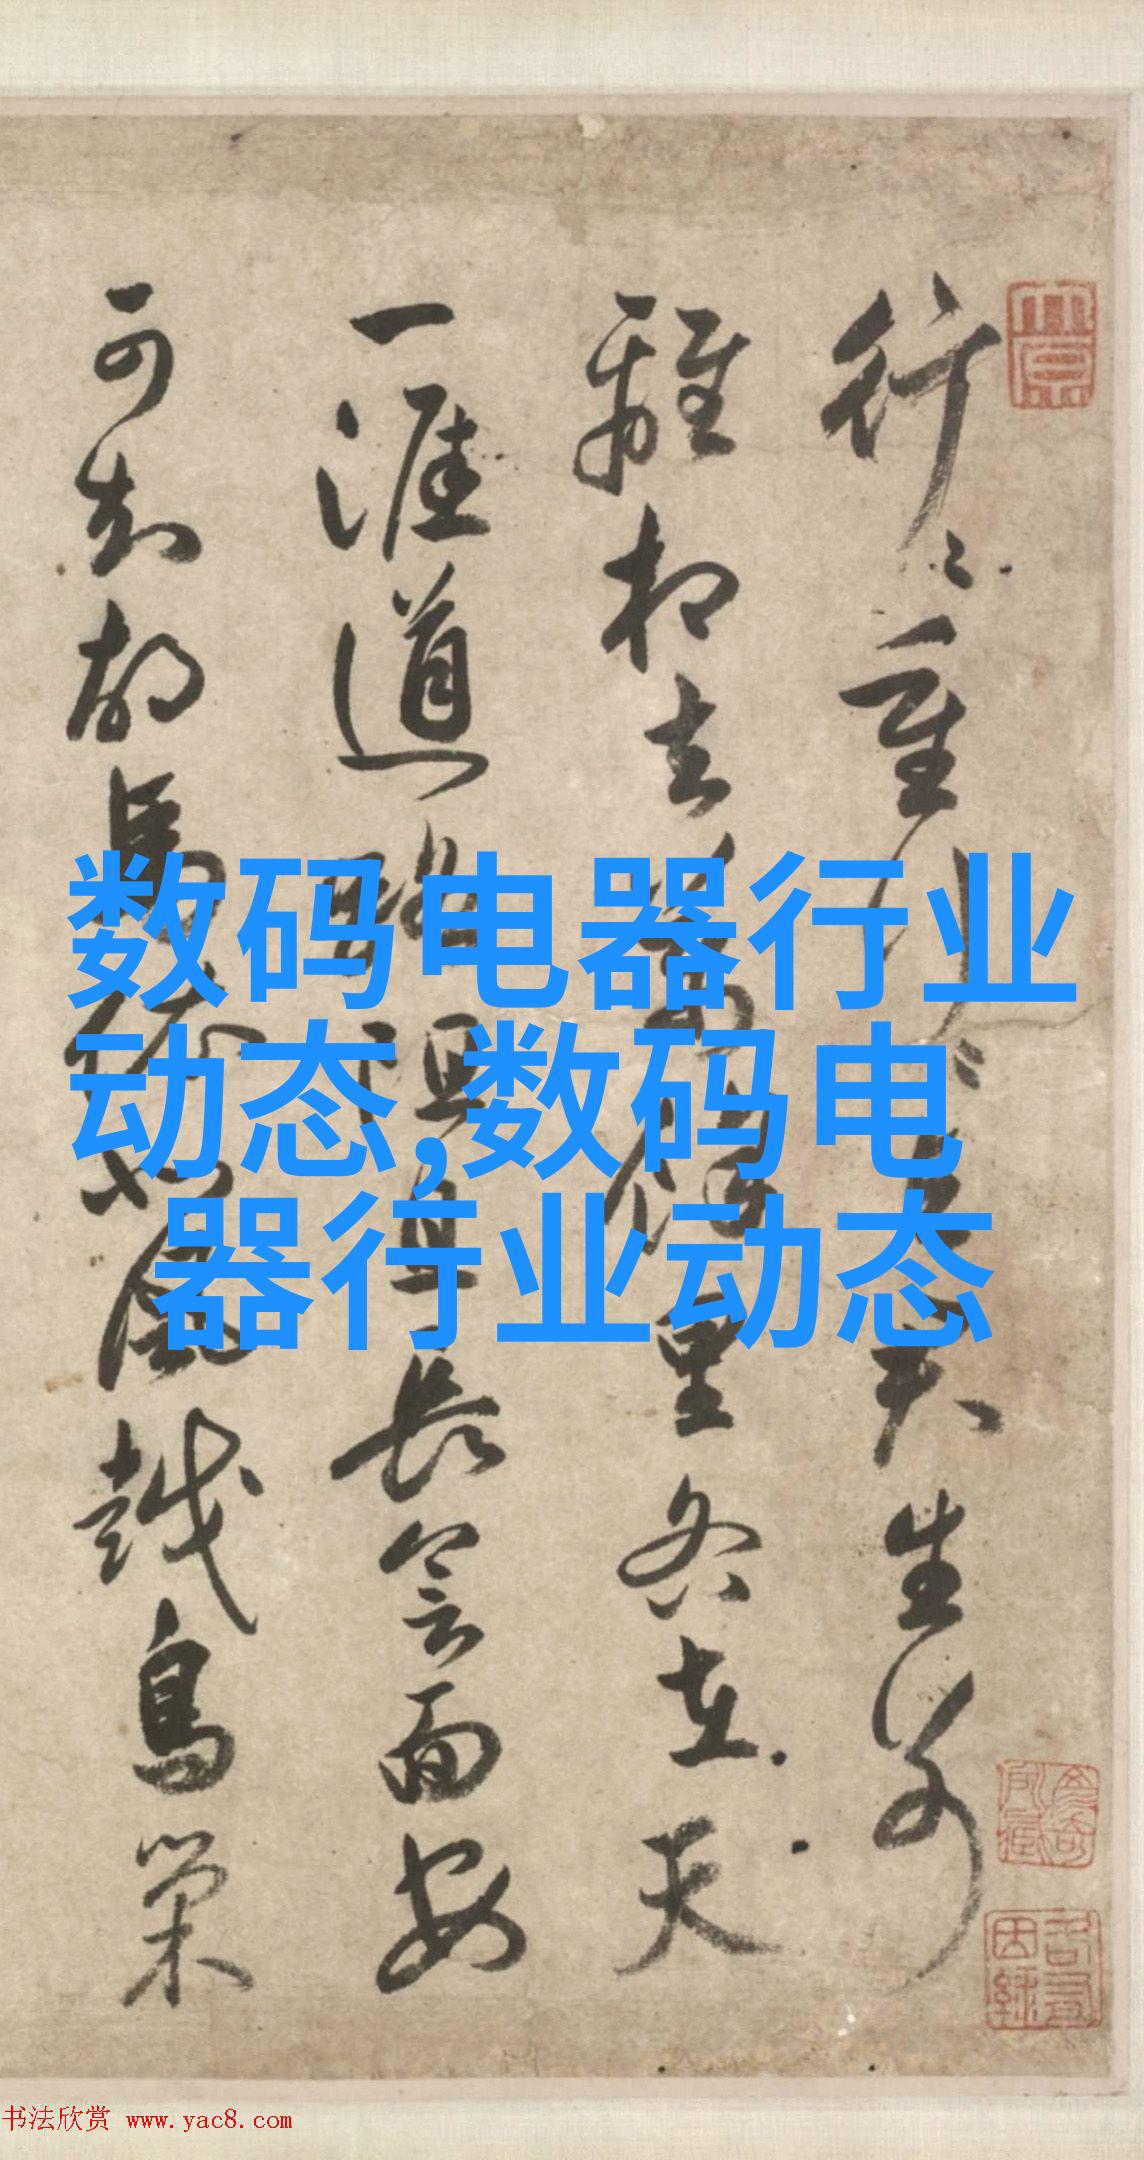 行〻重行〻與君生別
離相去萬餘里各在天
一涯道路阻且長會面安
可知胡馬依北風越鳥巢
数码电器行业
动态,数码电
器行业动态
书法欣赏 www.yac8.com